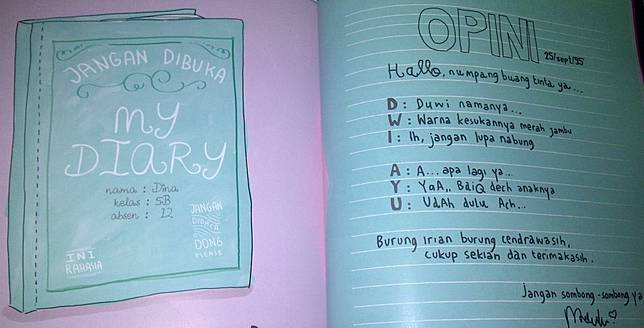 JANGAN DIBUKA
MY
DIARY
nama : Dina
kelas : 5B
absen : 12
JANGAN
DONG
PLEASE
INI
RAHASIA
OPINI
25/sept/95
Hallo, numpang buang tinta ya...
D : Duwi namanya...
W : Warna kesukannya merah jambu
I : Ih, jangan lupa nabung
A : A... apa lagi ya..
Y : YaA,, BaiQ dech anaknya
U : UdAh dulu Ach...
Burung irian burung cendrawasih,
cukup sekian dan terimakasih.
Jangan sombong-sombong ya